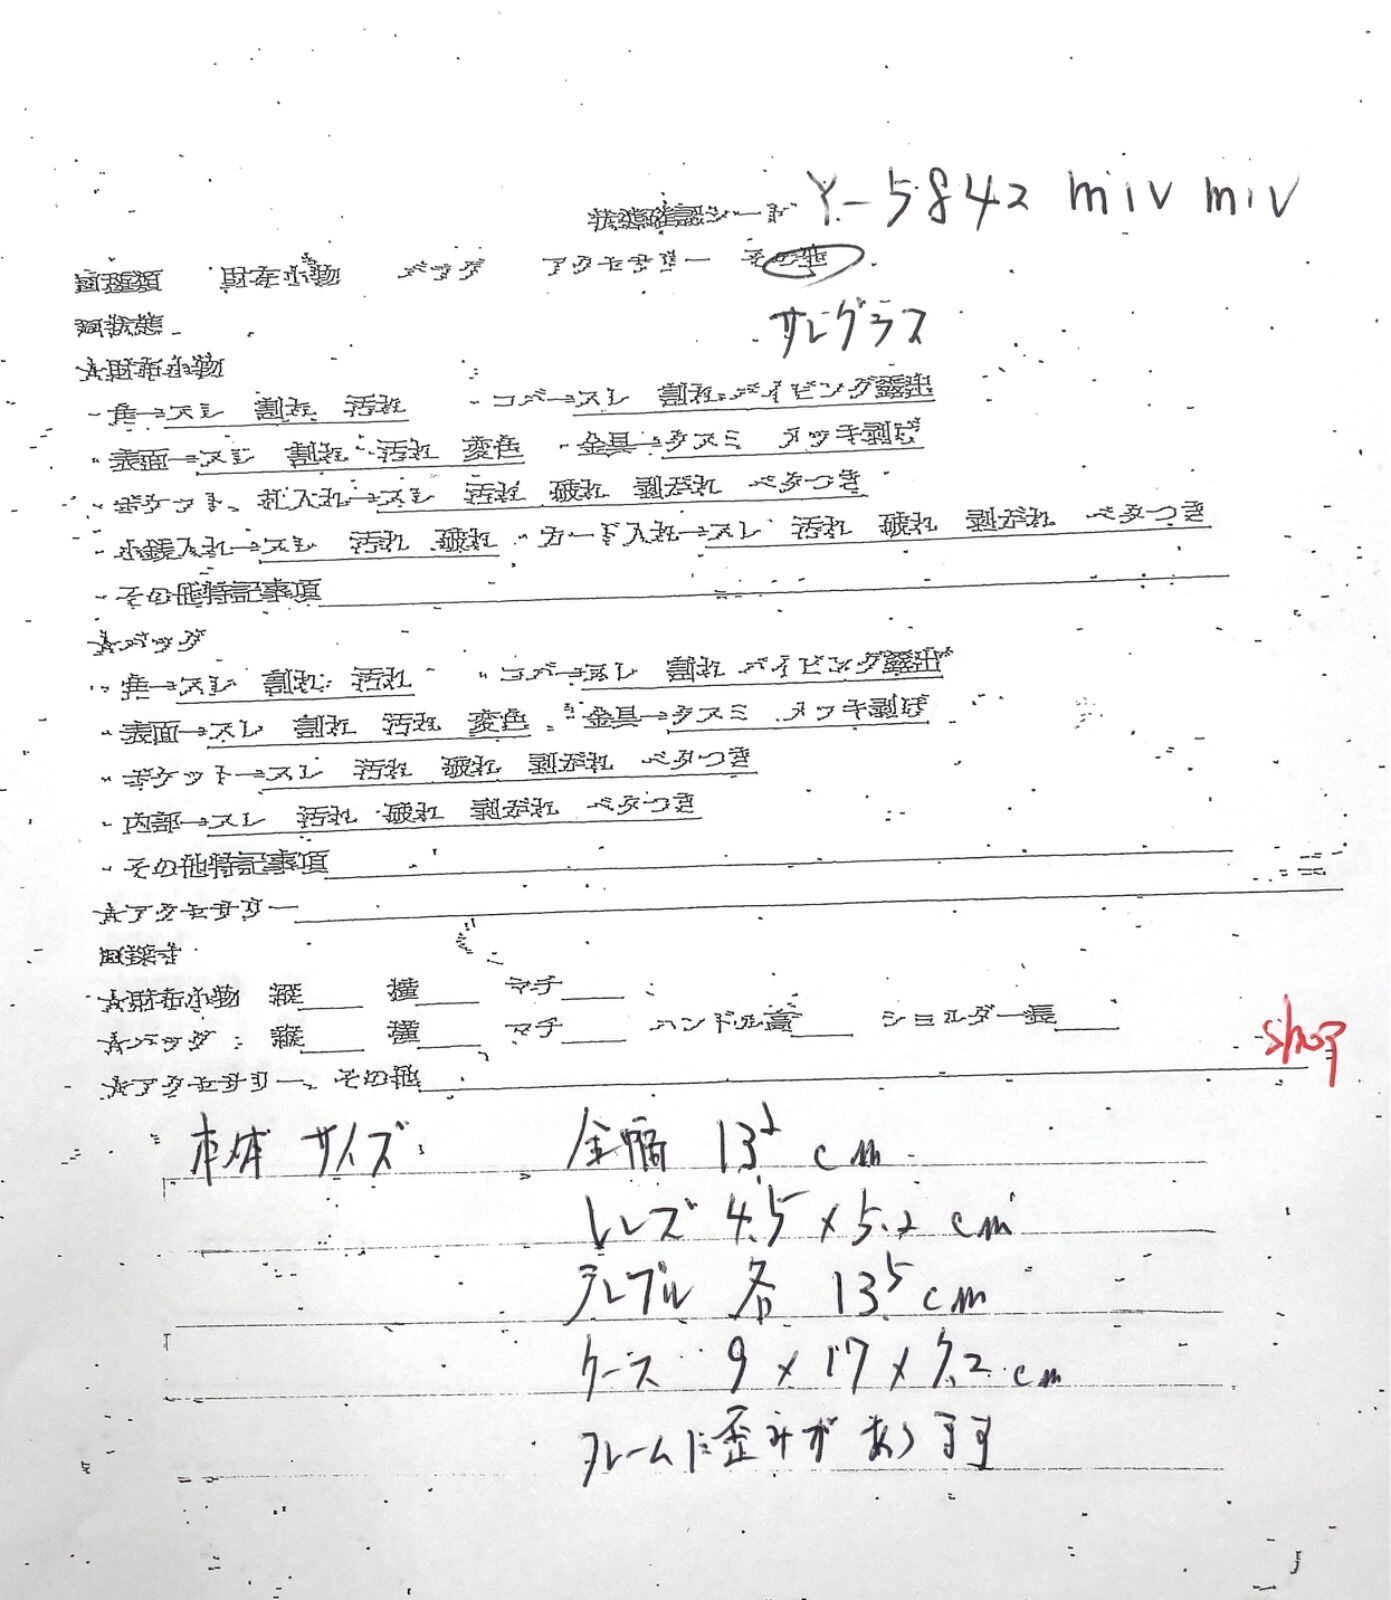 状態確認シート Y-5842 miu miu
□種類 財布小物 バッグ アクセサリー その他
サングラス
□状態
☆財布小物
・角→スレ 割れ 汚れ ・コバ→スレ 割れ パイピング露出
・表面→スレ 割れ 汚れ 変色 ・金具→クスミ メッキ剥げ
・ポケット、札入れ→スレ 汚れ 破れ 剥がれ ベタつき
・小銭入れ→スレ 汚れ 破れ ・カード入れ→スレ 汚れ 破れ 剥がれ ベタつき
・その他特記事項
☆バッグ
・角→スレ 割れ 汚れ ・コバ→スレ 割れ パイピング露出
・表面→スレ 割れ 汚れ 変色 ・金具→クスミ メッキ剥げ
・ポケット→スレ 汚れ 破れ 剥がれ ベタつき
・内部→スレ 汚れ 破れ 剥がれ ベタつき
・その他特記事項
☆アクセサリー
□採寸
☆財布小物 縦 横 マチ
☆バッグ: 縦 横 マチ ハンドル高 ショルダー長
shop
☆アクセサリー、その他
本体サイズ: 全幅 13² cm
レンズ 4.5×5.2 cm
テンプル 各 13⁵cm
ケース 9×17×7.2cm
フレームに歪みがあります